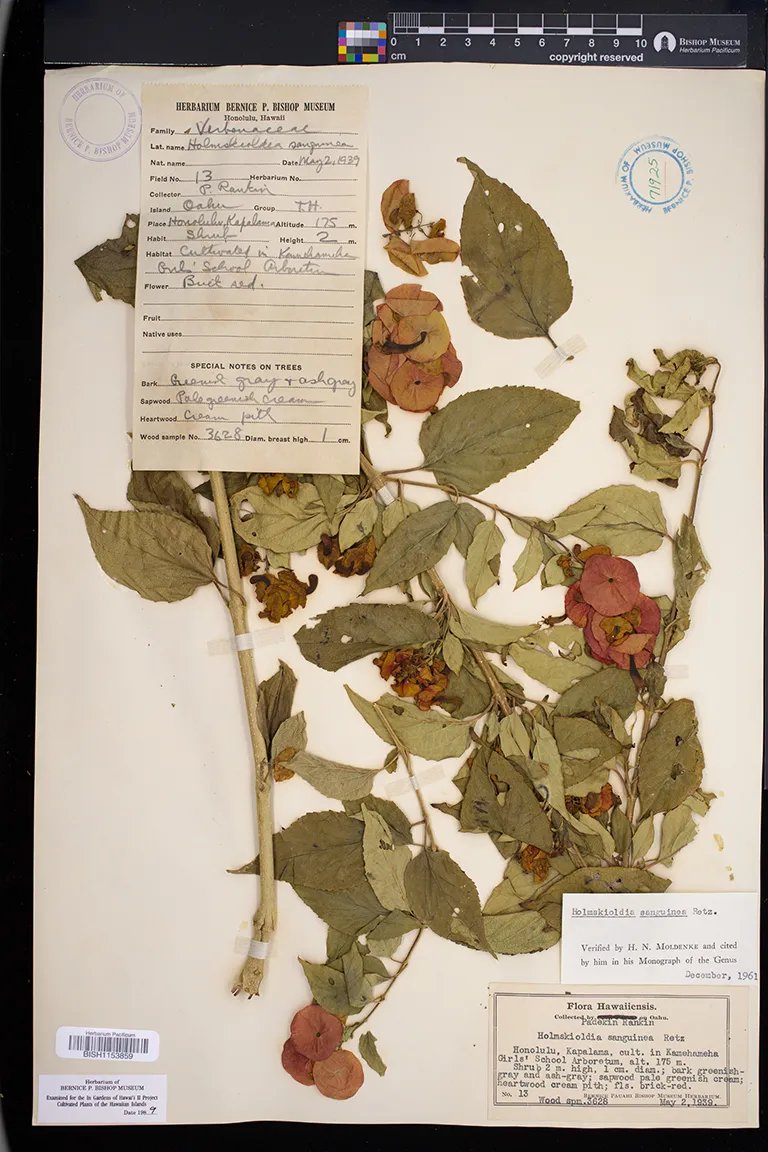 0 1 2 3 4 5 6 7 8 9 10
cm
copyright reserved
BISHOP MUSEUM
Herbarium Pacificum
HERBARIUM OF
BERNICE P. BISHOP MUSEUM
HERBARIUM BERNICE P. BISHOP MUSEUM
Honolulu, Hawaii
Family Verbenaceae
Lat. name Holmskioldia sanguinea
Nat. name Date May 2, 1939
Field No. 13 Herbarium No.
Collector P. Rankin
Island Oahu Group T.H.
Place Honolulu, Kapalama Altitude 175 m.
Habit Shrub Height 2 m.
Habitat Cultivated in Kamehameha
Girls' School Arboretum
Flower Brick red.
Fruit
Native uses
SPECIAL NOTES ON TREES
Bark Greenish gray & ash gray
Sapwood Pale greenish cream
Heartwood Cream pith
Wood sample No. 3628 Diam. breast high 1 cm.
HERBARIUM OF BERNICE P. BISHOP MUSEUM
71925
Holmskioldia sanguinea Retz.
Verified by H. N. MOLDENKE and cited
by him in his Monograph of the Genus
December, 1961
Flora Hawaiiensis.
Collected by on Oahu.
Padekin Rankin
Holmskioldia sanguinea Retz
Honolulu, Kapalama, cult. in Kamehameha
Girls' School Arboretum, alt. 175 m.
Shrub 2 m. high, 1 cm. diam.; bark greenish-
gray and ash-gray; sapwood pale greenish cream;
heartwood cream pith; fls. brick-red.
No. 13 BERNICE PAUAHI BISHOP MUSEUM HERBARIUM.
Wood spm. 3628 May 2, 1939.
Herbarium Pacificum
BISH1153859
Herbarium of
BERNICE P. BISHOP MUSEUM
Examined for the In Gardens of Hawai'i II Project
Cultivated Plants of the Hawaiian Islands
Date 1989